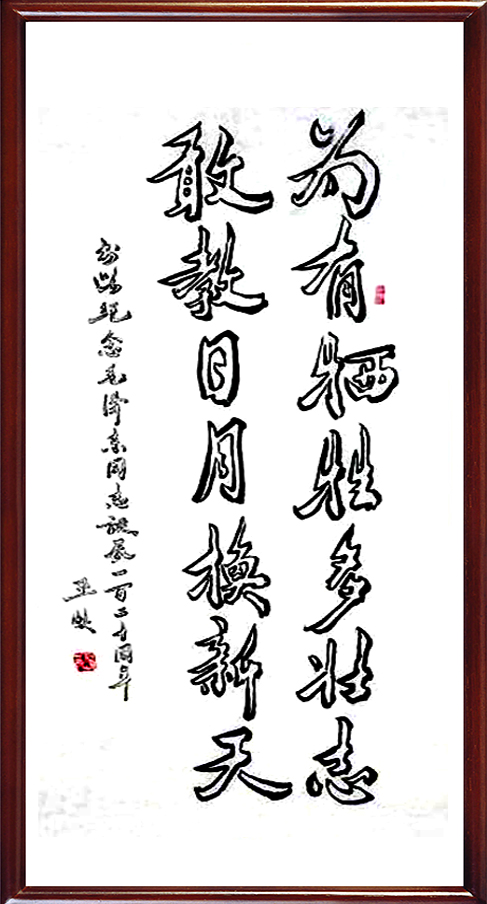 为有牺牲多壮志
敢教日月换新天
纪念毛泽东同志诞辰一百二十周年
王